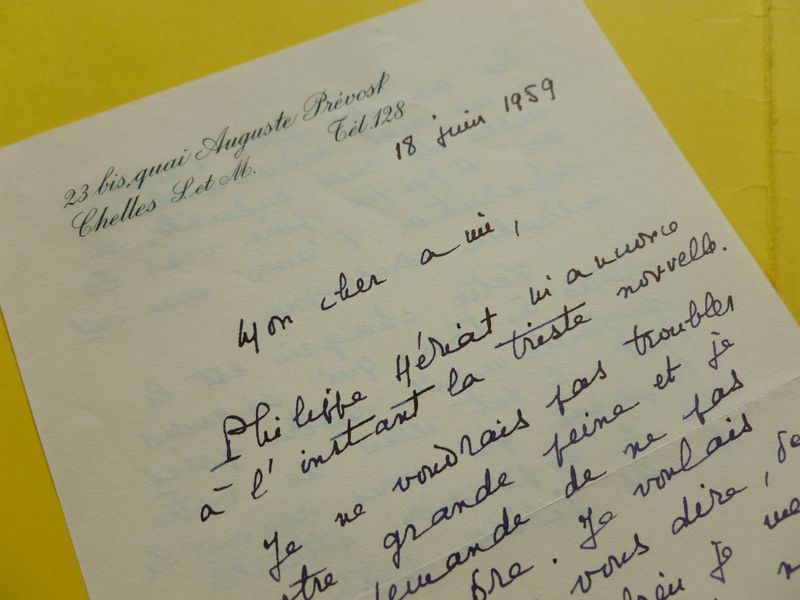 23 bis, quai Auguste Prévost
Chelles S. et M. Tél. 128
18 juin 1959
Mon cher ami,
Philippe Hériat m'annonce
à l'instant la triste nouvelle.
Je ne voudrais pas troubler
grande peine et je
demande de ne pas
Je voulais
vous dire,
je me